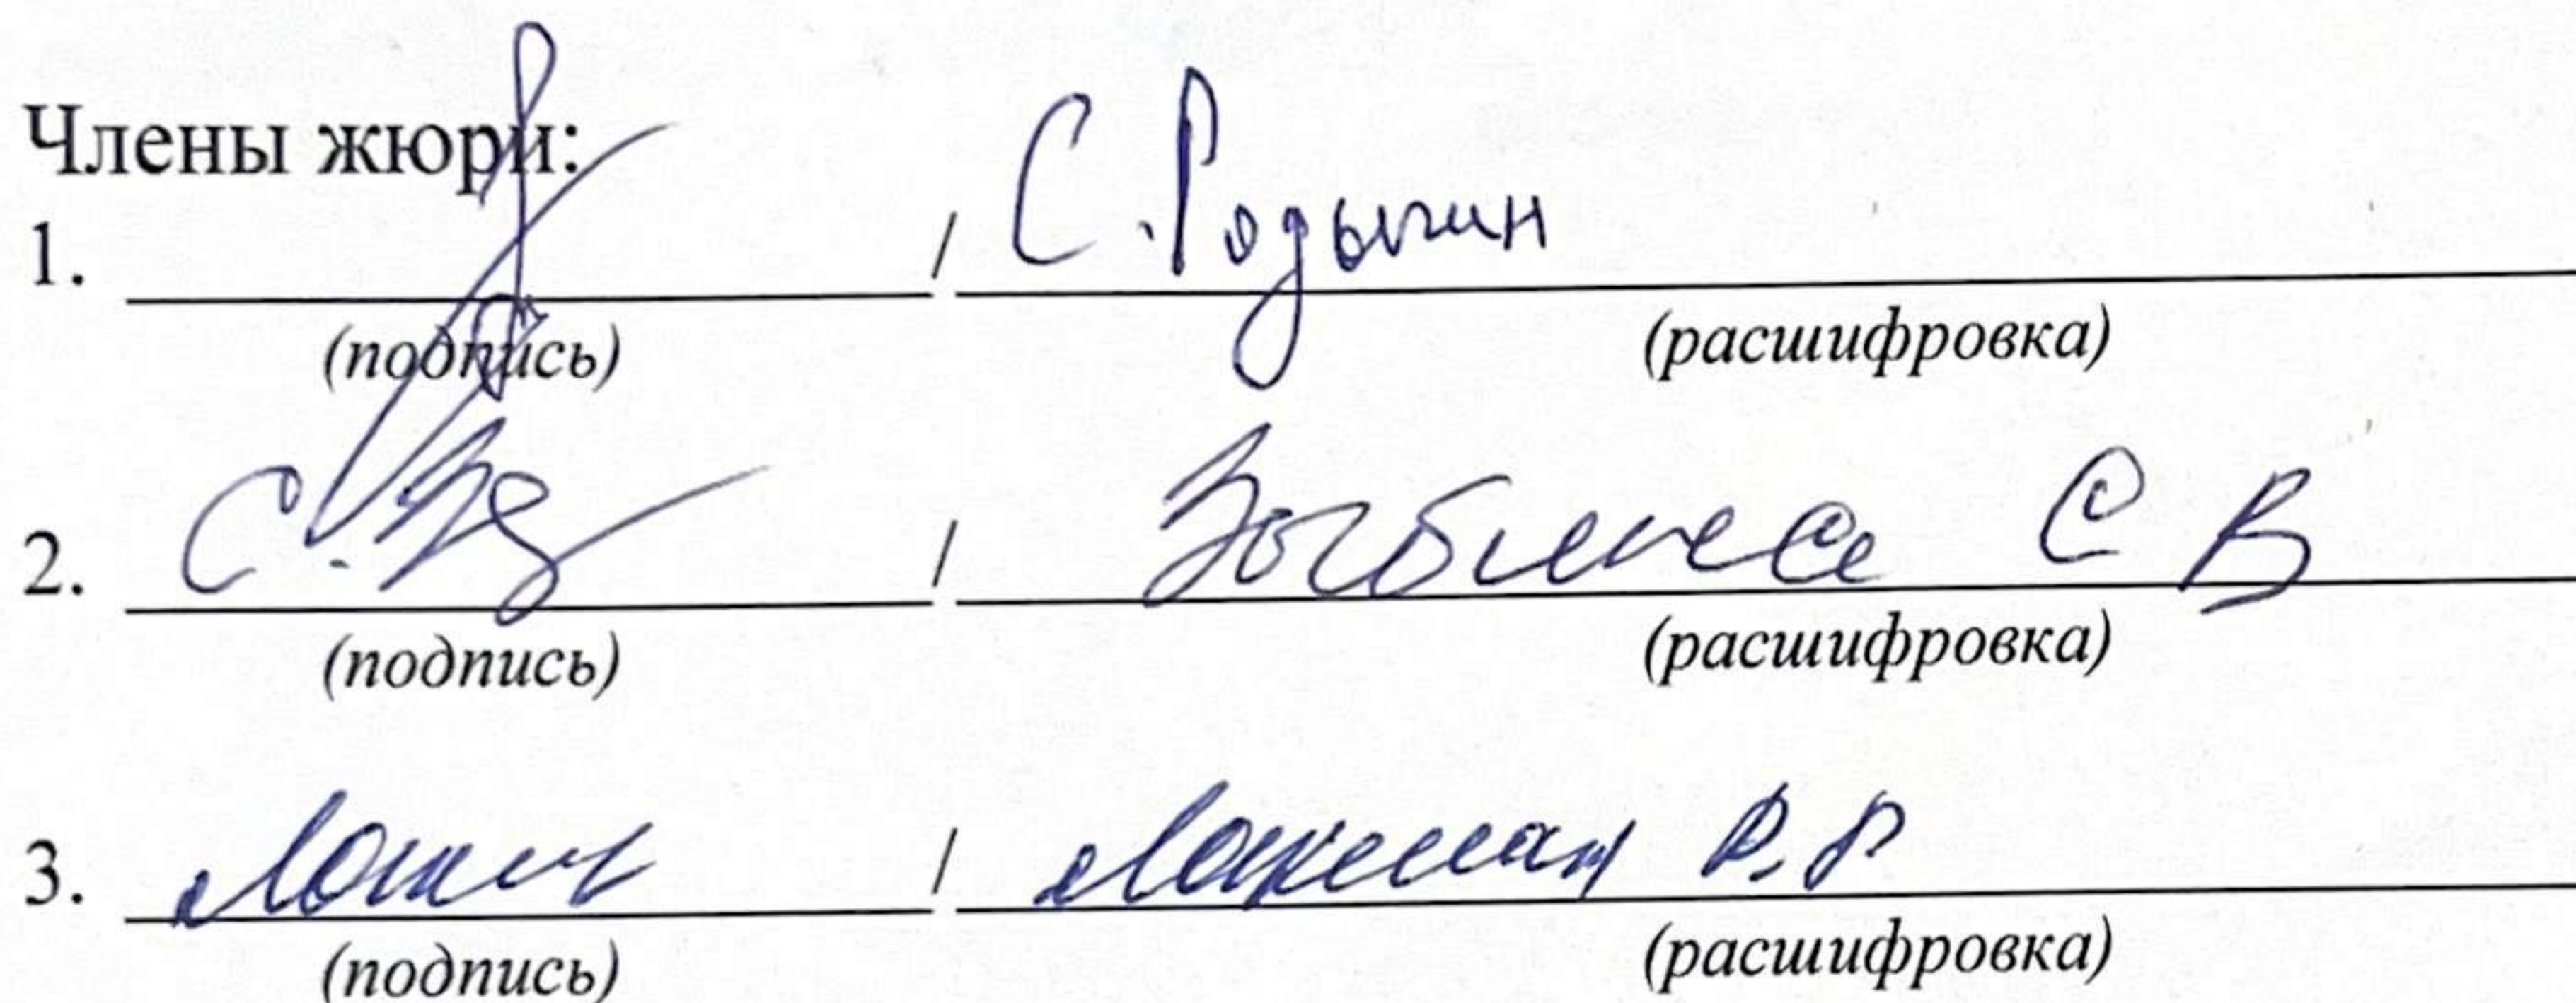 Члены жюри:
1. / С. Родыгин
(подпись) (расшифровка)
2. / С В
(подпись) (расшифровка)
3. / Р. Р
(подпись) (расшифровка)